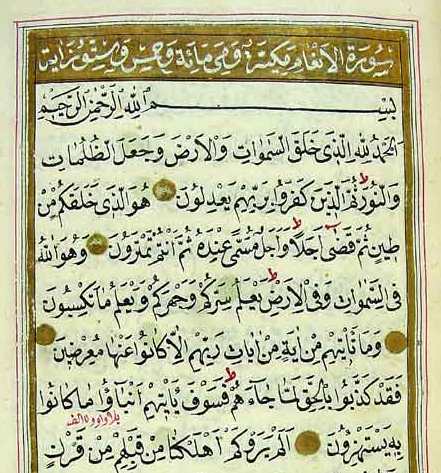 سُورَةُ الْاَنْعَامِ مَكِّيَّةٌ وَهِيَ مِائَةٌ وَخَمْسٌ وَسِتُّونَ اٰيَةً
بِسْمِ اللّٰهِ الرَّحْمٰنِ الرَّحِيمِ
اَلْحَمْدُ لِلّٰهِ الَّذِى خَلَقَ السَّمٰوَاتِ وَالْاَرْضَ وَجَعَلَ الظُّلُمَاتِ
وَالنُّورَ ثُمَّ الَّذِينَ كَفَرُوا بِرَبِّهِمْ يَعْدِلُونَ هُوَ الَّذِى خَلَقَكُمْ مِنْ
طِينٍ ثُمَّ قَضٰى اَجَلًا وَاَجَلٌ مُسَمًّى عِنْدَهُ ثُمَّ اَنْتُمْ تَمْتَرُونَ وَهُوَ اللّٰهُ
فِى السَّمٰوَاتِ وَفِى الْاَرْضِ يَعْلَمُ سِرَّكُمْ وَجَهْرَكُمْ وَيَعْلَمُ مَا تَكْسِبُونَ
وَمَا تَأْتِيهِمْ مِنْ اٰيَةٍ مِنْ اٰيَاتِ رَبِّهِمْ اِلَّا كَانُوا عَنْهَا مُعْرِضِينَ
فَقَدْ كَذَّبُوا بِالْحَقِّ لَمَّا جَاءَهُمْ فَسَوْفَ يَأْتِيهِمْ اَنْبَاؤُا مَا كَانُوا
بِهِ يَسْتَهْزِؤُنَ اَلَمْ يَرَوْا كَمْ اَهْلَكْنَا مِنْ قَبْلِهِمْ مِنْ قَرْنٍ